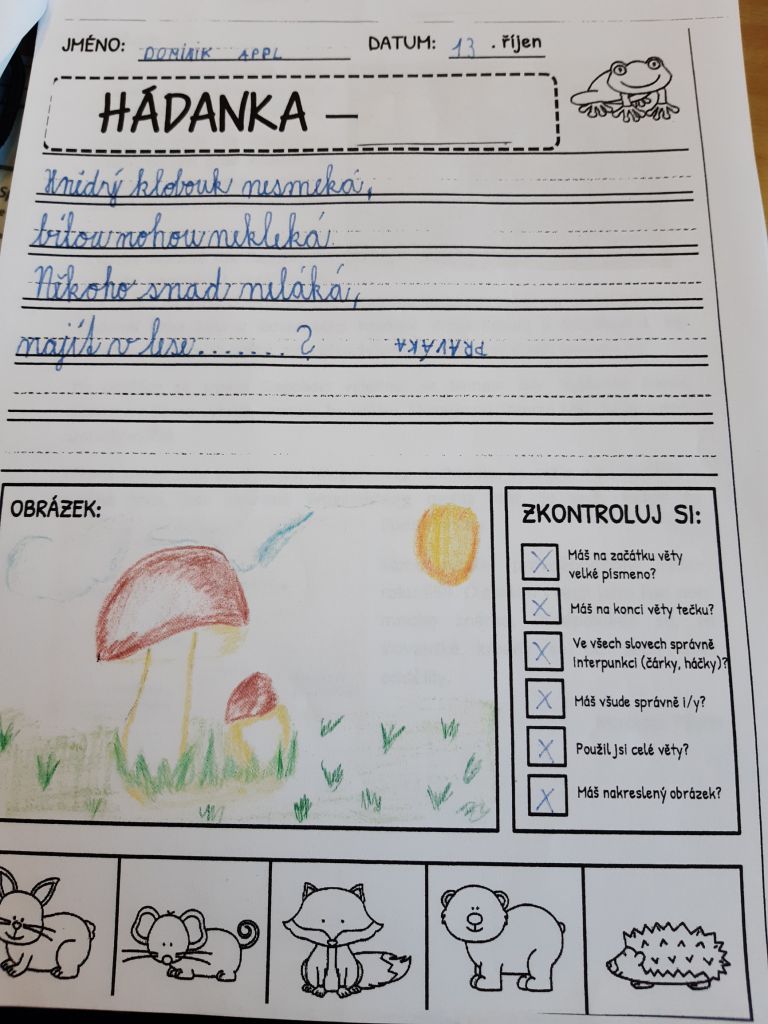 JMÉNO: DOMINIK APPL DATUM: 13 . říjen
HÁDANKA –
Hnědrý klobouk nesmeká,
bílou nohou nekleká
Někoho snad neláká,
najít v lese.......? PRAVÁKA
OBRÁZEK:
ZKONTROLUJ SI:
X Máš na začátku věty
velké písmeno?
X Máš na konci věty tečku?
X Ve všech slovech správně
interpunkci (čárky, háčky)?
X Máš všude správně i/y?
X Použil jsi celé věty?
X Máš nakreslený obrázek?